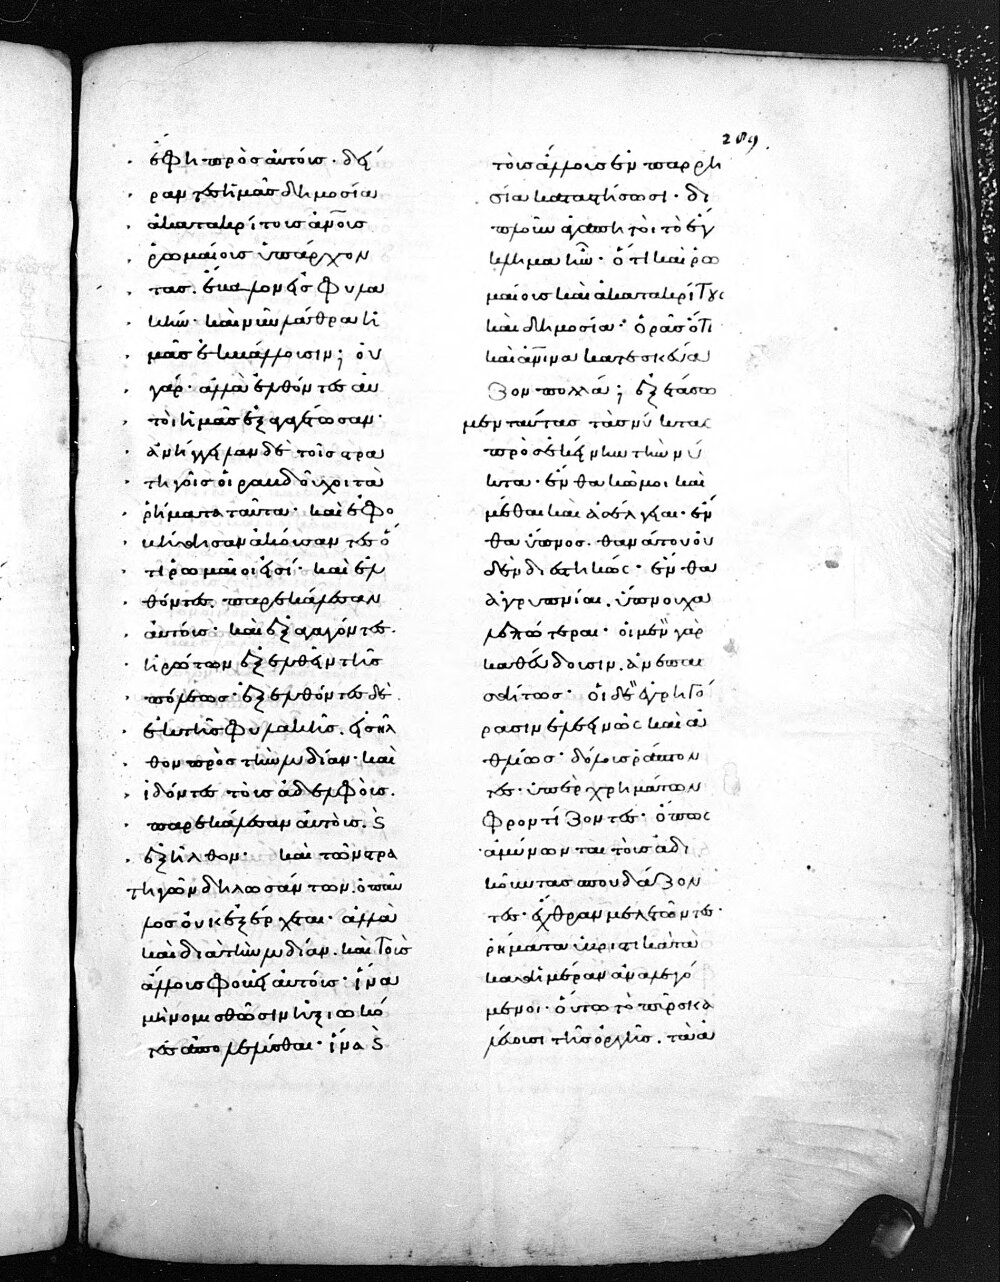 289
ἔφη πρὸς αὐτούς· δεί
ραντες ἡμᾶς δημοσία
ἀκατακρίτοις ἀν̅οις
ῥωμαίοις ὑπάρχον
τας. ἔβαλον εἰς φυλα
κήν· καὶ νῦν λάθρα ἡ
μᾶς ἐκβάλλουσιν; οὐ
γάρ· ἀλλὰ ἐλθόντες αὐ
τοὶ ἡμᾶς ἐξαγαγέτωσαν·
ἀνήγγειλαν δὲ τοῖς στρα
τηγοῖς οἱ ραβδοῦχοι τὰ
ῥήματα ταῦτα· καὶ ἐφο
βήθησαν ἀκούσαντες ὅ
τι ῥωμαῖοι εἰσί· καὶ ἐλ
θόντες παρεκάλεσαν
αὐτούς· καὶ ἐξαγαγόντες
ἠρώτων ἐξελθεῖν τῆς
πόλεως· ἐξελθόντες δὲ
ἐκ τῆς φυλακῆς. εἰσῆλ
θον πρὸς τὴν λυδίαν· καὶ
ἰδόντες τοὺς ἀδελφούς.
παρεκάλεσαν αὐτούς. ϗ
ἐξῆλθον· καὶ τῶν στρα
τηγῶν δηλωσάντων. ὁ παῦ
λος οὐκ ἐξέρχεται· ἀλλὰ
καὶ διὰ τὴν λυδίαν. καὶ τοὺς
ἄλλους φοβεῖ αὐτούς· ἵνα
μὴ νομισθῶσιν ἠξιωκό
τες ἀπολελύσθαι· ἵνα ϗ
τοὺς ἄλλους ἐν παρρη
σία καταστήσωσι· δι
πλοῦν ἀγαπητοὶ τὸ ἔγ
κλημα ἦν· ὅτι καὶ ρω
μαίους καὶ ἀκατακρίτους
καὶ δημοσία· ὁρᾶς ὅτι
καὶ ἀν̅ινα κατεσκεύα
ζον πολλά; ἐξετάσω
μεν ταύτας τὰς νύκτας
πρὸς ἐκείνην τὴν νύ
κτα· ἔνθα κῶμοι καὶ
μέθαι καὶ ἀσέλγειαι· ἔν
θα ὕπνος. θανάτου οὐ
δὲν διεστηκώς· ἔνθα
ἀγρυπνίαι. ὕπνου χα
λεπώτεραι· οἱ μὲν γὰρ
καθεύδουσιν. ἀνεπαι
σθήτως· οἱ δὲ ἐγρηγό
ρασιν ἐλεεινῶς καὶ ἀ
θλίως· δόλους ράπτον
τες· ὑπὲρ χρημάτων
φροντίζοντες· ὅπως
ἀμύνωνται τοὺς ἀδι
κοῦντας σπουδάζον
τες· ἔχθραν μελετῶντες·
ῥήματα ὑβριστικὰ τὰ
καθ ἡμέραν ἀναλεγό
μενοι· οὕτω τὸ πῦρ σκα
λεύουσι τῆς ὀργῆς. τὰ ἀ